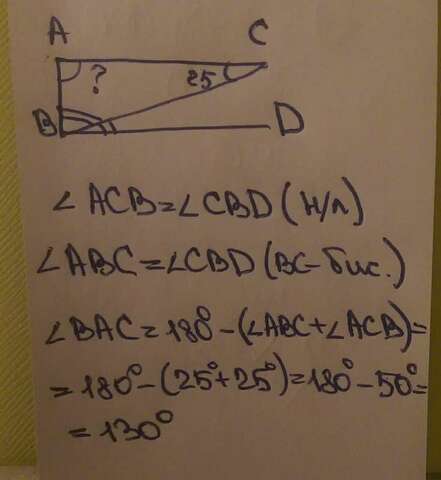 A C
? 25
B D
∠ACB=∠CBD(н/л)
∠ABC=∠CBD(BC-бис.)
∠BAC=180°-(∠ABC+∠ACB)=
=180°-(25°+25°)=180°-50°=
=130°